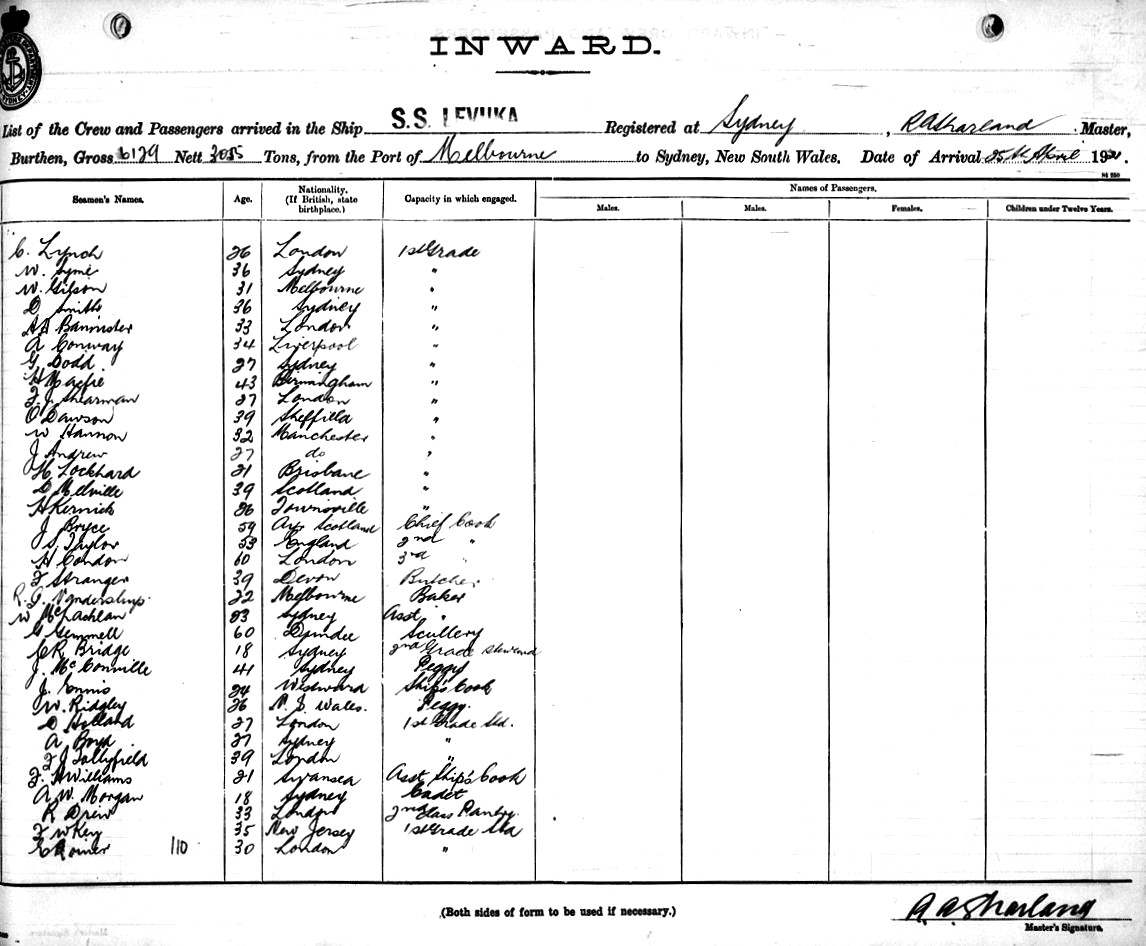 INWARD.
List of the Crew and Passengers arrived in the Ship S.S. LEVUKA Registered at Sydney, R A Sharland Master,
Burthen, Gross 6129 Nett 3055 Tons, from the Port of Melbourne to Sydney, New South Wales. Date of Arrival 25th April 19
Seamen's Names. Age. Nationality. (If British, state birthplace.) Capacity in which engaged. Names of Passengers.
Males. Males. Females. Children under Twelve Years.
C. Lynch 26 London 1st Grade
W. Syme 36 Sydney "
W. Gilson 31 Melbourne "
D Smith 36 Sydney "
A A Bannister 33 London "
A Conway 34 Liverpool "
G Dodd 27 Sydney "
H Macfie 43 Birmingham "
F. J. Shearman 27 London "
O Dawson 39 Sheffield "
W Hannon 32 Manchester "
J Andrew 27 do "
H Lockhard 21 Brisbane "
D Melville 39 Scotland "
H Kernick 26 Townsville "
J Bryce 59 Ayr Scotland Chief Cook
S Taylor 53 England 2nd "
H Condon 60 London 3rd "
F Stranger 39 Devon Butcher
R. G. 22 Melbourne Baker
W McLachlan 23 Sydney Asst "
G Gemmell 60 Dundee Scullery
C R Bridge 18 Sydney 2nd Grade Steward
J. McConville 41 Sydney Peggy
J. Ennis 24 Westward Ship's Cook
W. Ridgley 26 N. S. Wales. Peggy.
D Holland 27 London 1st Grade Std.
A Boyd 27 Sydney "
F J Jollyfield 39 London "
F. H Williams 21 Swansea Asst Ship's Cook
A. W. Morgan 18 Sydney Cadet
R Drew 33 London 2nd Class Pantry.
F W Key 35 New Jersey 1st Grade Std
E Romer 110 30 London "
(Both sides of form to be used if necessary.)
R A Sharland
Master's Signature.